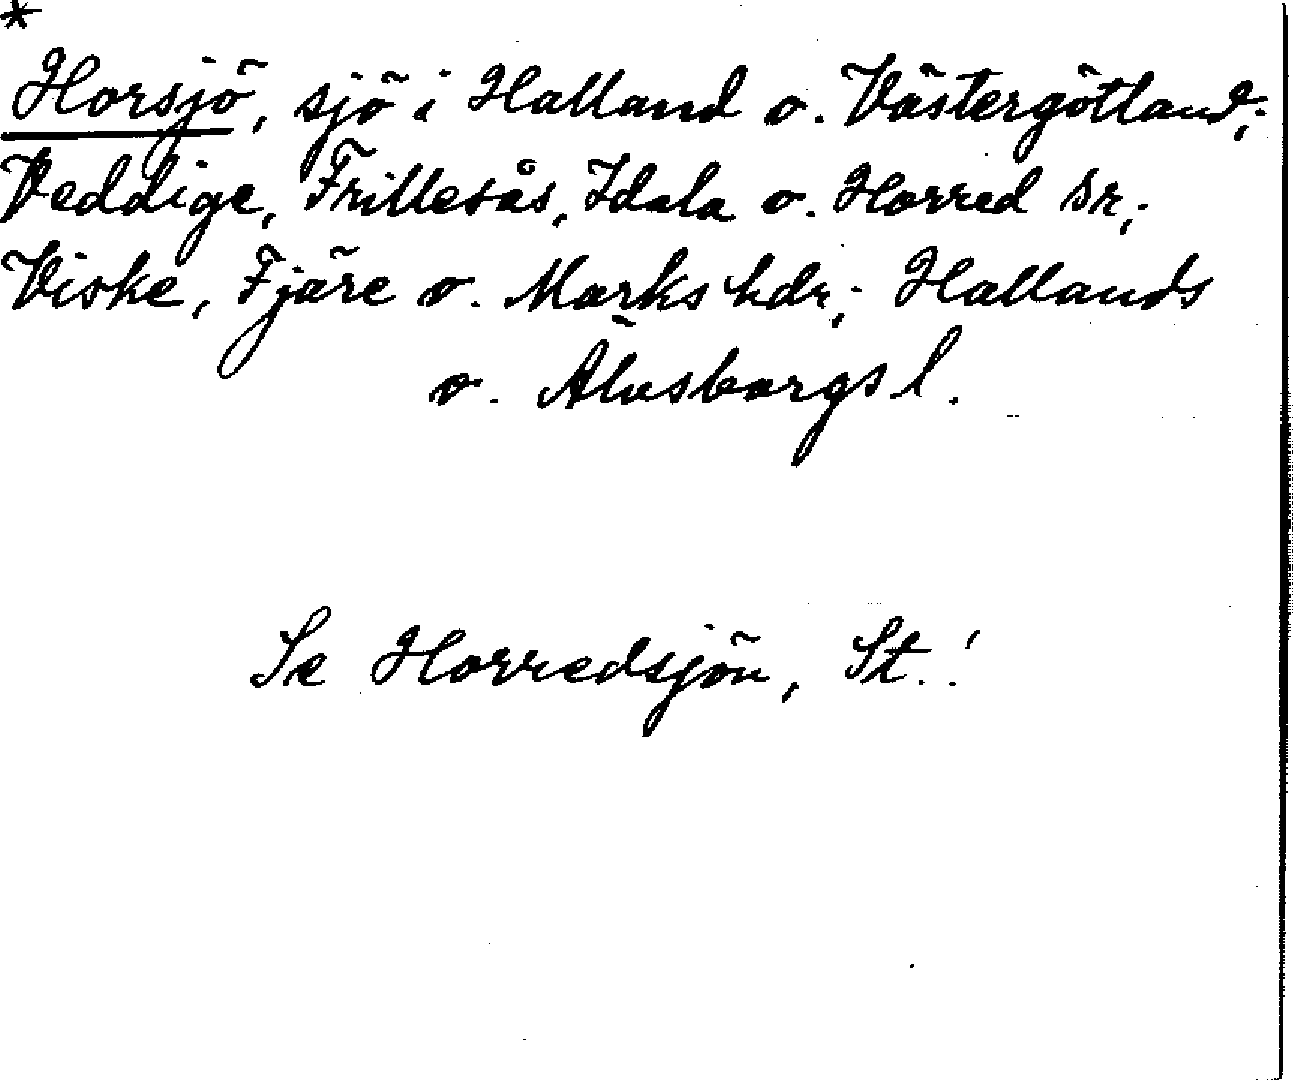 *
Horsjö, sjö i Halland o. Västergötland;
Veddige, Frillesås, Idala o. Horred snr;
Viske, Fjäre o. Marks hdr; Hallands
o. Älvsborgs l.
Se Horredsjön, St.!